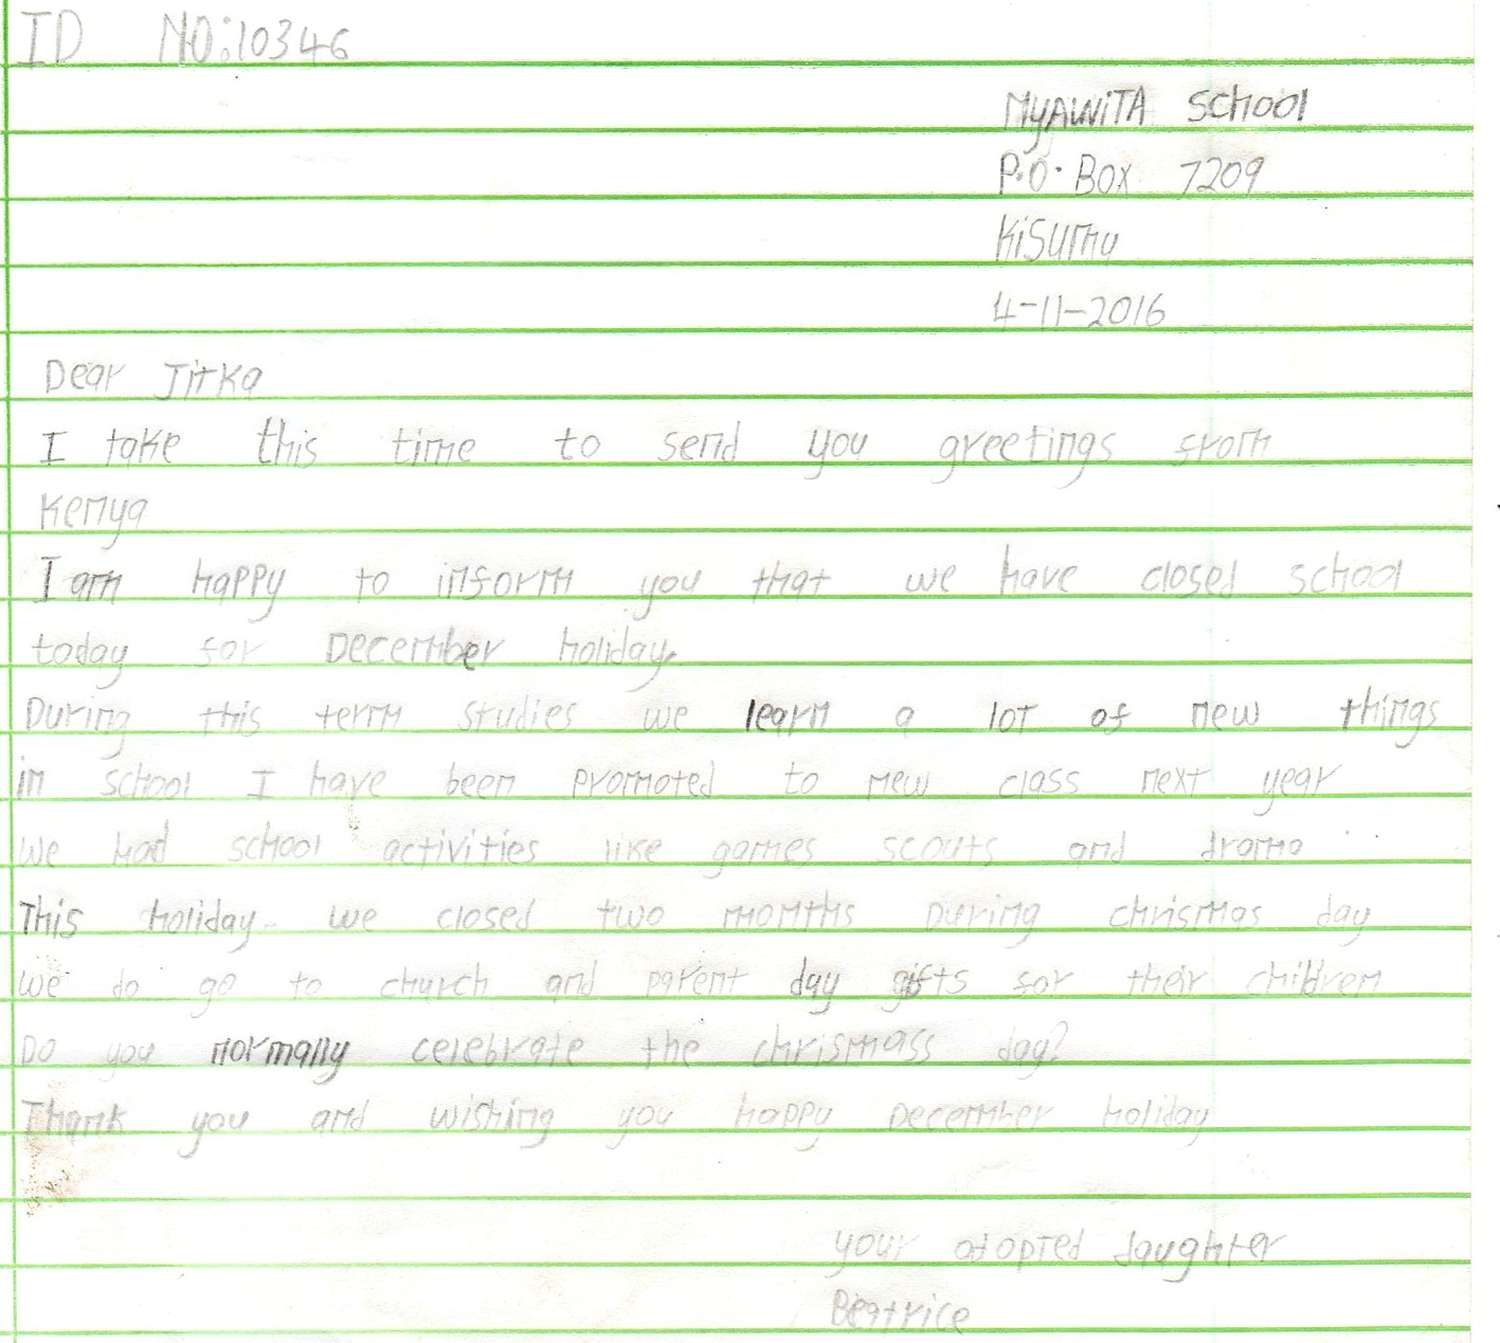 ID NO:10346
MYAWITA SCHOOL
P.O. Box 7209
Kisumu
4-11-2016
Dear Jitka
I take this time to send you greetings from
Kenya
I am happy to inform you that we have closed school
today for December holiday
During this term studies we learn a lot of new things
in school I have been promoted to new class next year
we had school activities like games scouts and drama
This holiday we closed two months During chrismas day
we do go to church and parent day gifts for their children
Do you normally celebrate the chrismass day?
Thank you and wishing you happy December holiday
your adopted daughter
Beatrice